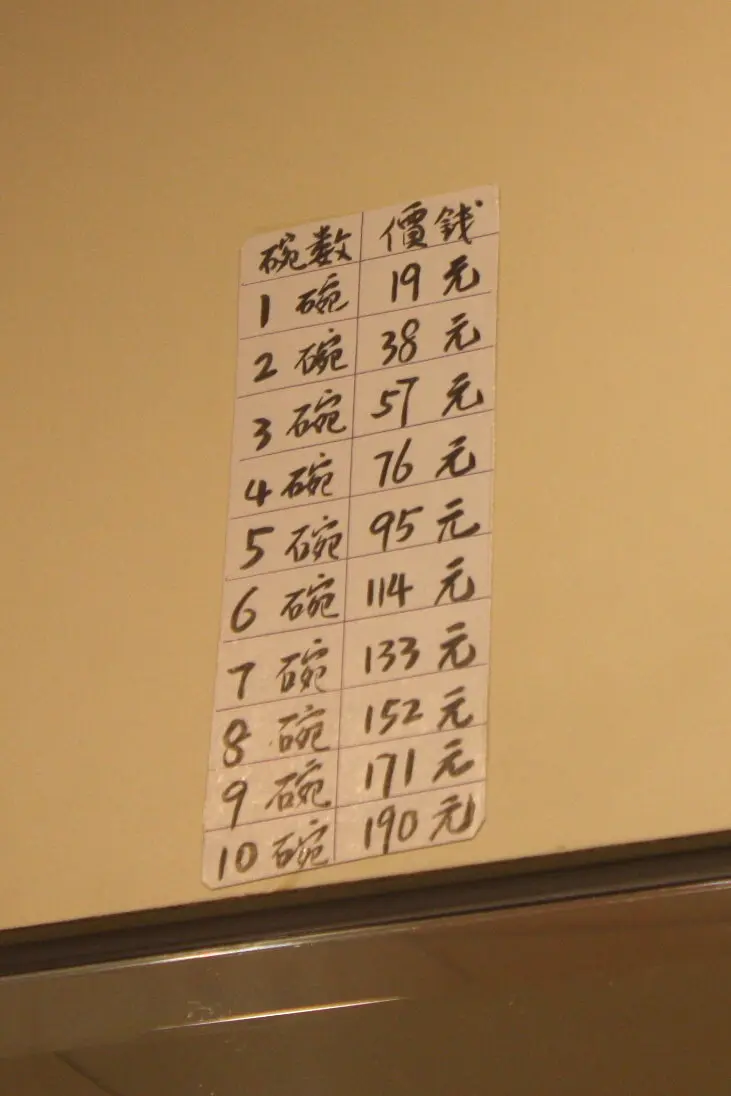 碗数 價錢
1 碗 19 元
2 碗 38 元
3 碗 57 元
4 碗 76 元
5 碗 95 元
6 碗 114 元
7 碗 133 元
8 碗 152 元
9 碗 171 元
10 碗 190 元